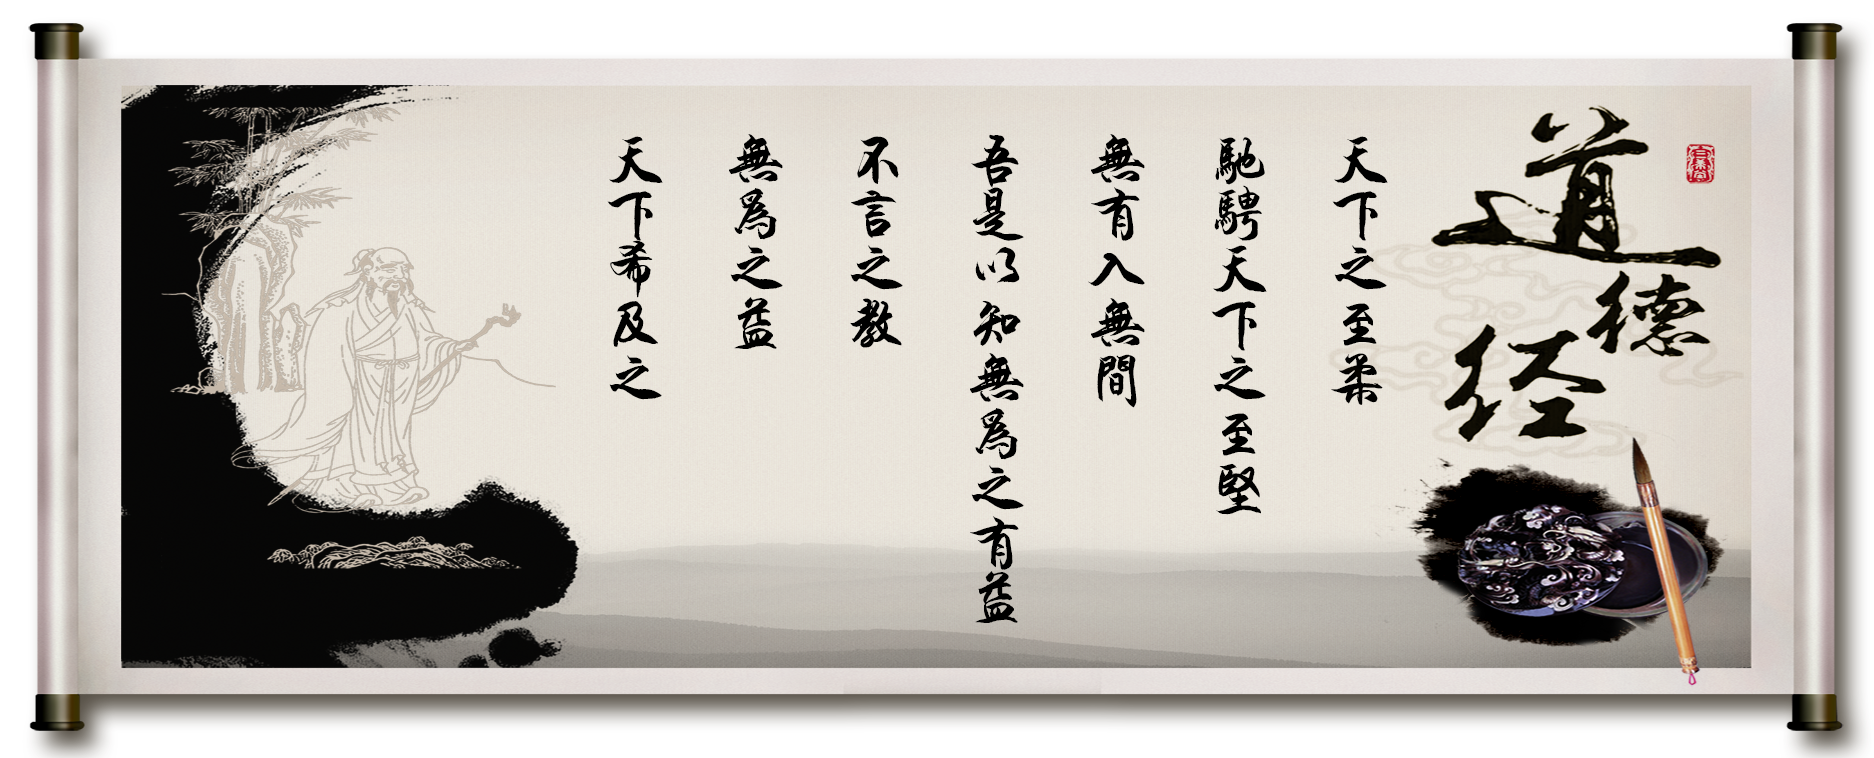 道德经
天下之至柔
馳騁天下之至堅
無有入無間
吾是以知無為之有益
不言之教
無為之益
天下希及之